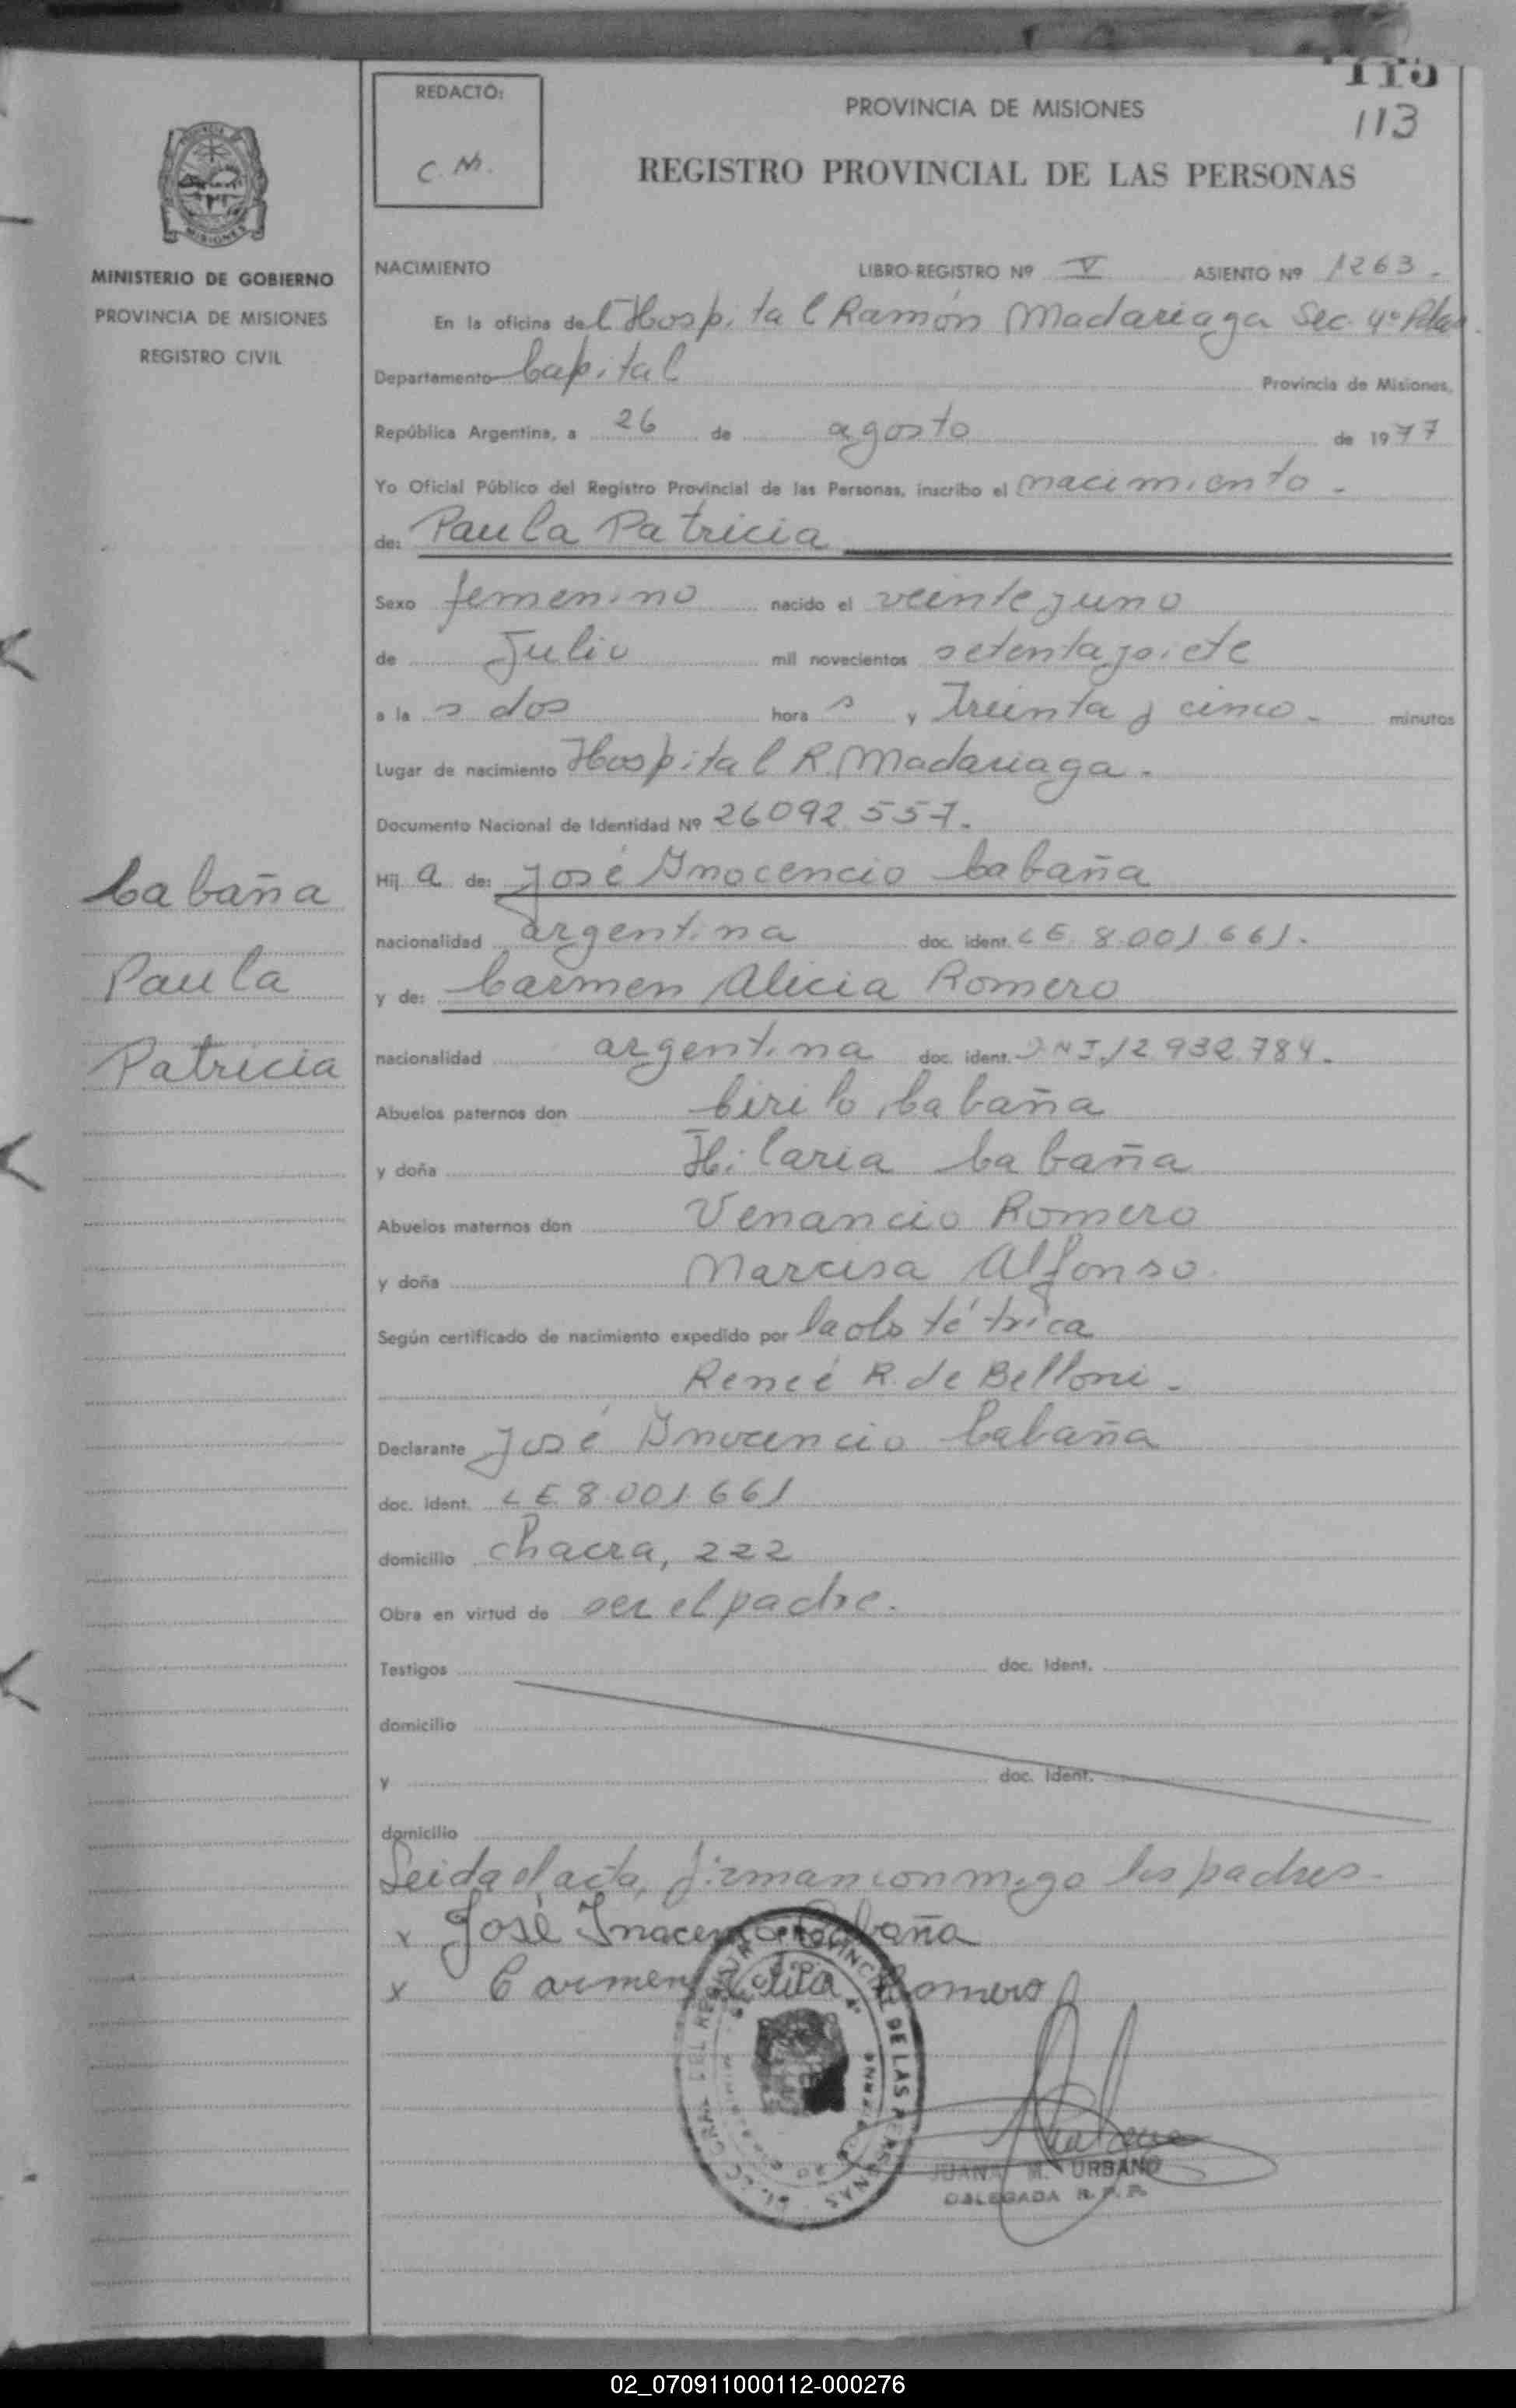 115
113
REDACTÓ:
C. M.
PROVINCIA DE MISIONES
REGISTRO PROVINCIAL DE LAS PERSONAS
MISIONES
MINISTERIO DE GOBIERNO
PROVINCIA DE MISIONES
REGISTRO CIVIL
NACIMIENTO LIBRO-REGISTRO Nº V ASIENTO Nº 1263.
En la oficina del Hospital Ramón Madariaga Sec. 4º Pdas.
Departamento Capital Provincia de Misiones,
República Argentina, a 26 de agosto de 1977
Yo Oficial Público del Registro Provincial de las Personas, inscribo el nacimiento.
de: Paula Patricia
Sexo femenino nacido el veinte y uno
de Julio mil novecientos setenta y siete
a las dos horas y treinta y cinco. minutos
Lugar de nacimiento Hospital R. Madariaga.
Documento Nacional de Identidad Nº 26092.557.
Cabaña
Paula
Patricia
Hija de: José Inocencio Cabaña
nacionalidad argentina doc. ident. LE 8.001.661.
y de: Carmen Alicia Romero
nacionalidad argentina doc. ident. DNI 12.932.784.
Abuelos paternos don Cirilo Cabaña
y doña Hilaria Cabaña
Abuelos maternos don Venancio Romero
y doña Narcisa Alfonso.
Según certificado de nacimiento expedido por la obstétrica
Reneé R. de Belloni.
Declarante José Inocencio Cabaña
doc. ident. LE 8.001.661
domicilio chacra, 222
Obra en virtud de ser el padre.
Testigos doc. Ident.
domicilio
y doc. Ident.
domicilio
Leida el acta, firman conmigo los padres.
x José Inocencio Cabaña
x Carmen Alicia Romero
JUANA M. URBANO
DELEGADA R. P. P.
02_070911000112-000276